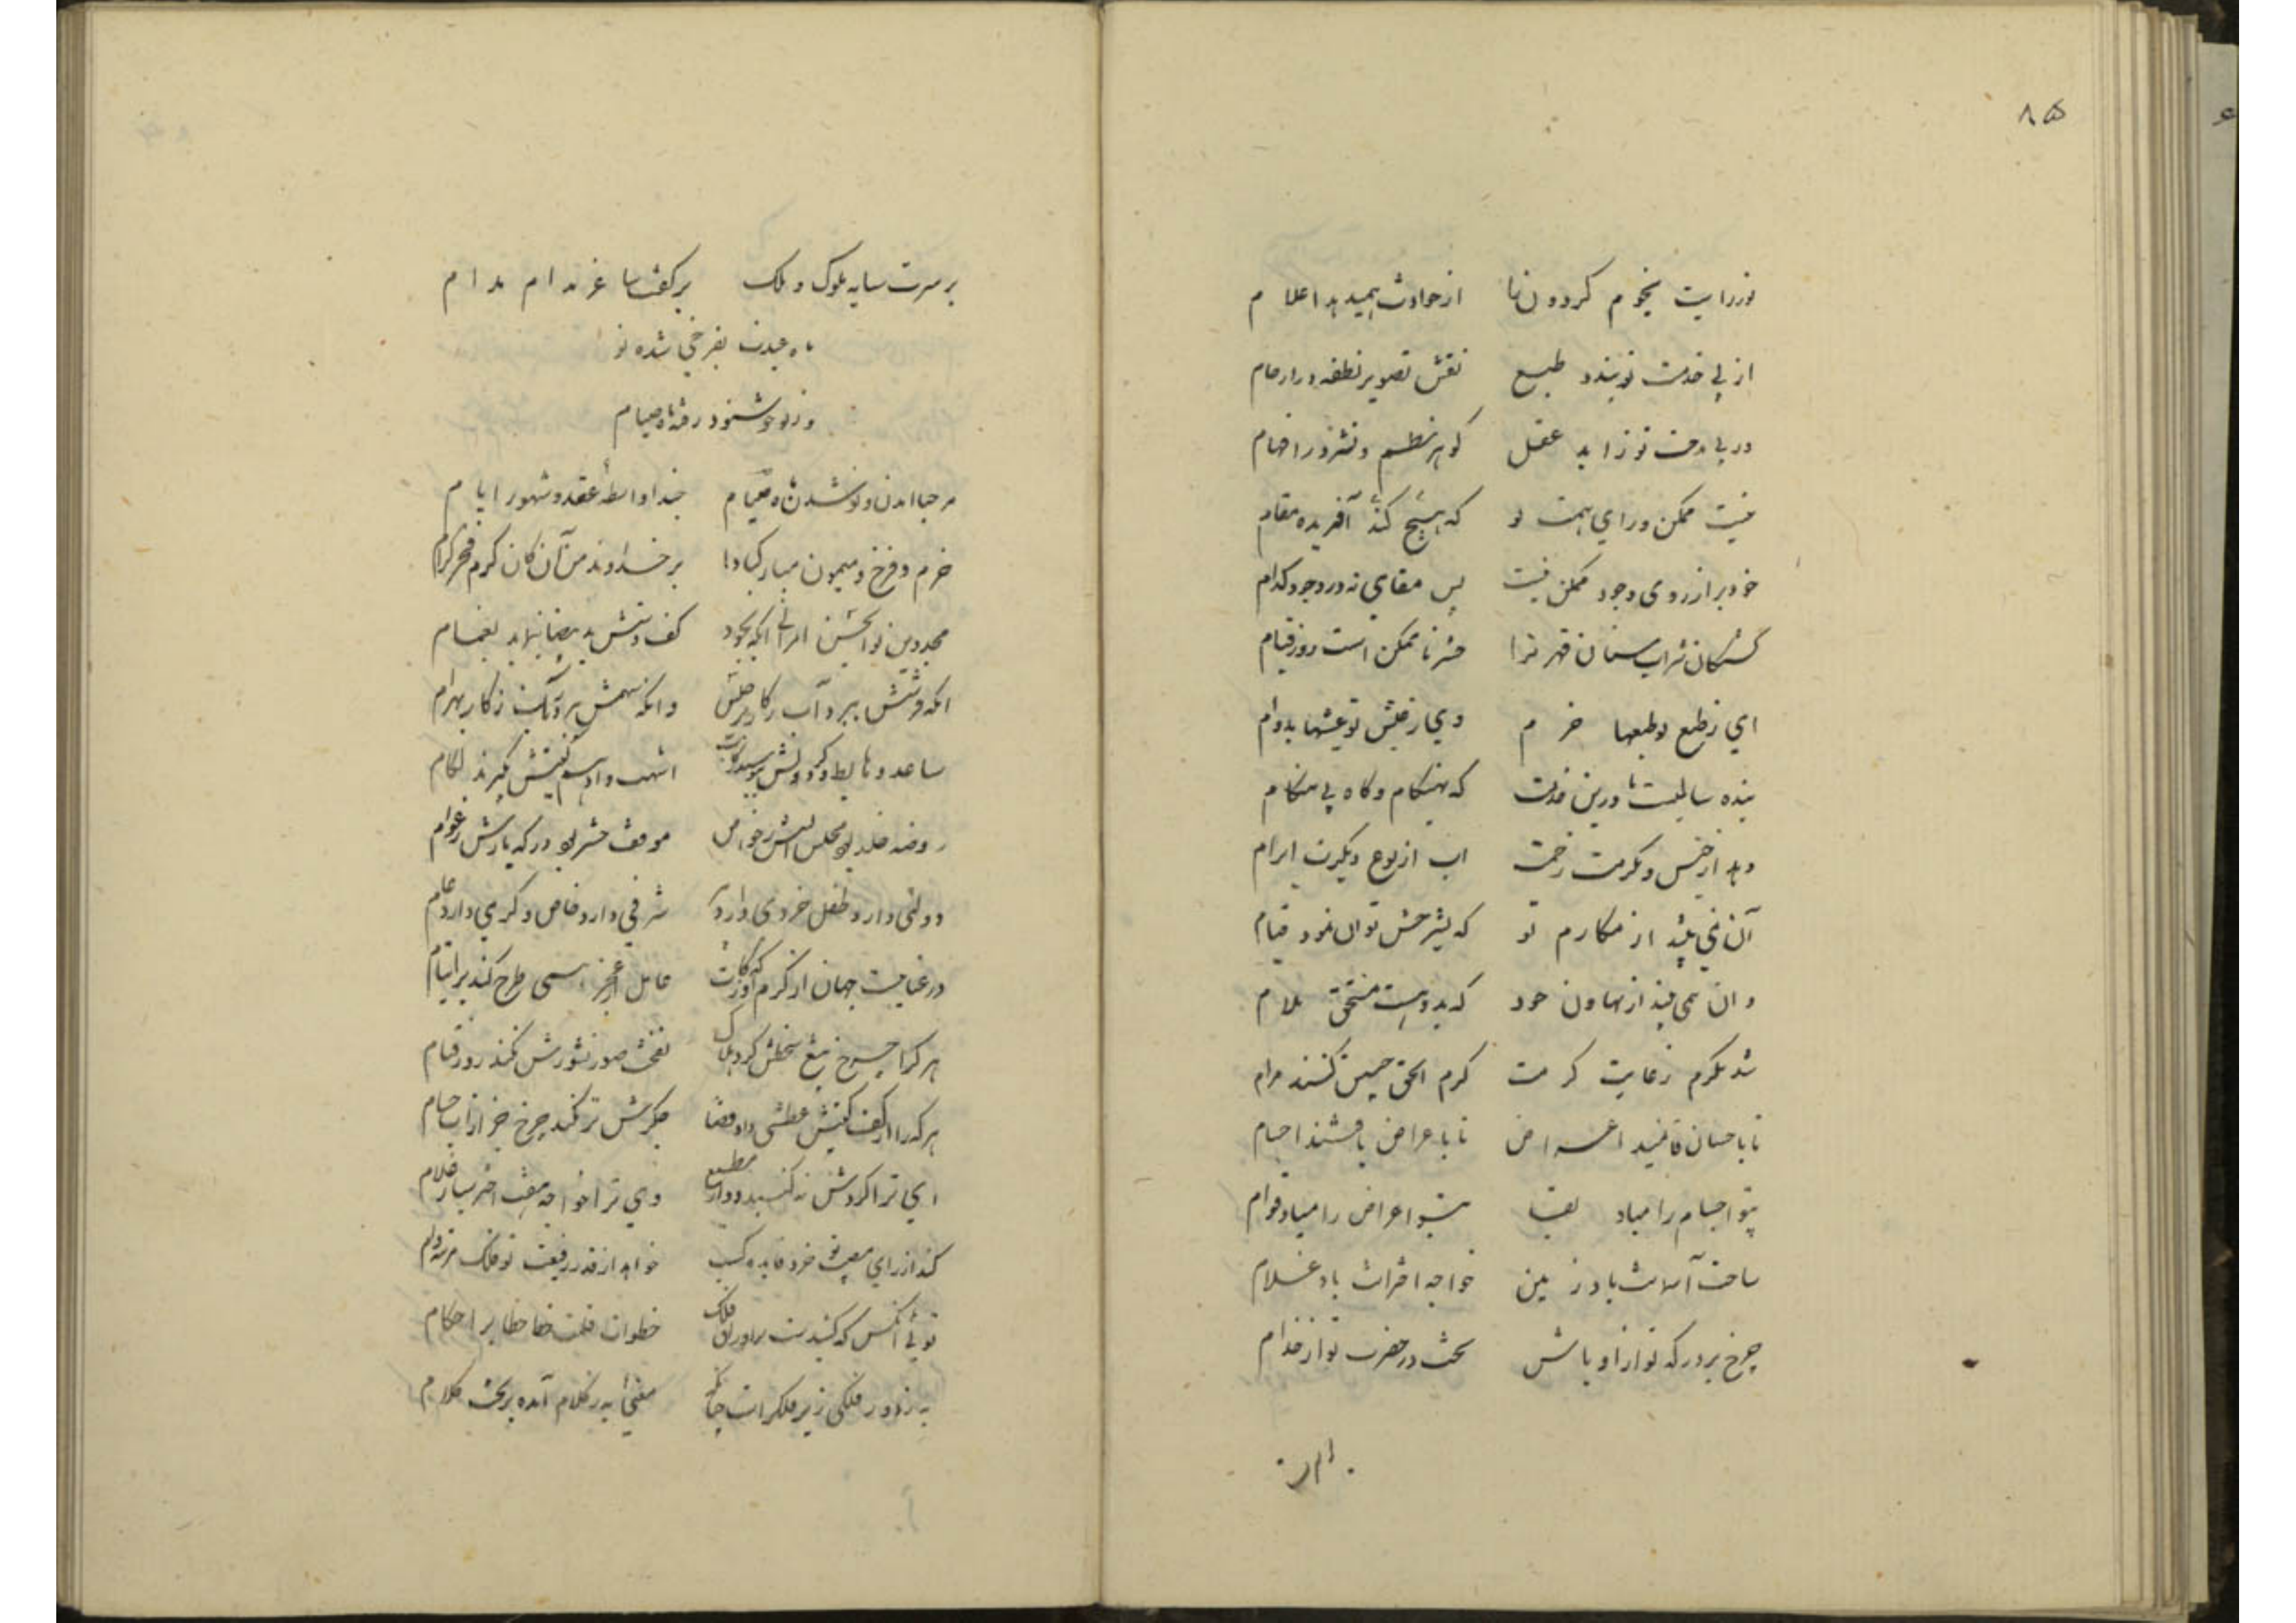 ۸۵
نور رایت نجوم گردون را از حوادث همیدهد اعلام
از پی خدمت تو بندد طبع نقش تصویر نطفه در ارحام
در پی مدحت تو زاید عقل گوهر نظم و نثر در افهام
نیست ممکن ورای همت تو که هیچ کند آفریده مقام
خود برازروی وجود ممکن نیست پس مقامی نه در وجود کدام
کشتگان شراب سنان قهر ترا حشر ناممکن است روز قیام
ای ز طبع تو طبعها خرم وی ز عیش تو عیشها بدوام
بنده سالیست تا درین خدمت که بهنگام و گاه بی هنگام
دهد از جنس دیگرت زحمت از نوع دیگرت ابرام
آن نمی بیند از مکارم تو که بشرحش توان نمود قیام
وان نمی بیند از تهاون خود که بدو هست مستحق ملام
شد مکرم ز غایت کرمت کرم الحق چنین کنند مرام
تا باحسان قائمند اعراض تا باعراض باقیند اجسام
بتو اجسام را مباد بقا بیتو اعراض را مباد قوام
ساخت آسمانت باد زمین خواجه اخترانت باد غلام
چرخ بر درگه تو از اوباش بخت در حضرت تو از خدام
بر سرت سایه ملوک و ملک بر کفت ساغر مدام مدام
ماه عیدت بفرخی شده نو
وز تو خوشنود رفته ماه صیام
مرحبا آمدن و نو شدن ماه صیام حبذا واسطه عقد شهور ایام
خرم و فرخ و میمون مبارک بادا بر خداوند من آن کان کرم فخر کرام
مجد دین بوالحسن عمرانی آنکه بجود کف دستش ید بیضا بنماید بغمام
آنکه فرشش ببرد آب ز کار برجیس وانکه سهمش ببرد رنگ ز کار بهرام
ساعد و نایط گردونش ببوسد اشهب و ادهم گیتیش بگیرند لگام
روضه خلد بود مجلس انسش ز خواص موقف حشر بود درگه بارش ز عوام
دولتی دارد طفل خردی دارد پیر شرفی دارد خاص و کرمی دارد عام
در عنایت جهان از کرم عامل از عجز همی طرح کند بر ایتام
هر کرا چرخ بتیغ سخطش کرد هلاک نفخت صور نشورش نکند روز قیام
هر که را از کف کینش عطشی داد قضا جگرش تر نکند چرخ جز از آب حسام
ای ترا گردش نه گنبد دوار مطیع وی ترا خواجه هفت اختر سیار غلام
کند از رای مصیب تو خرد فایده کسب خواهد از قدر رفیع تو فلک مرتبه وام
توئی آنکس که کشیدست بر اوراق فلک خطوات قلمت خط خطا بر احکام